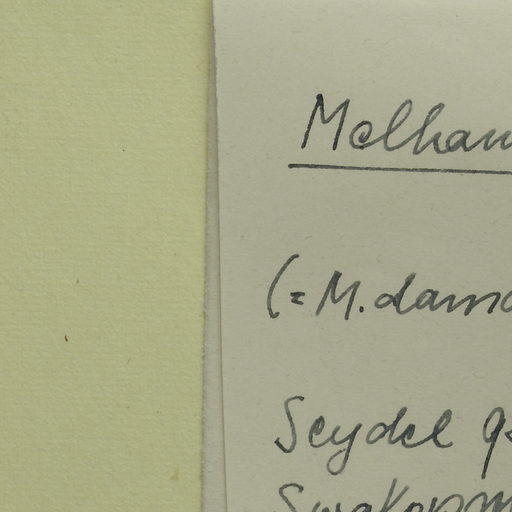 Melhan
(= M. dama
Seydel 9
Swakopm